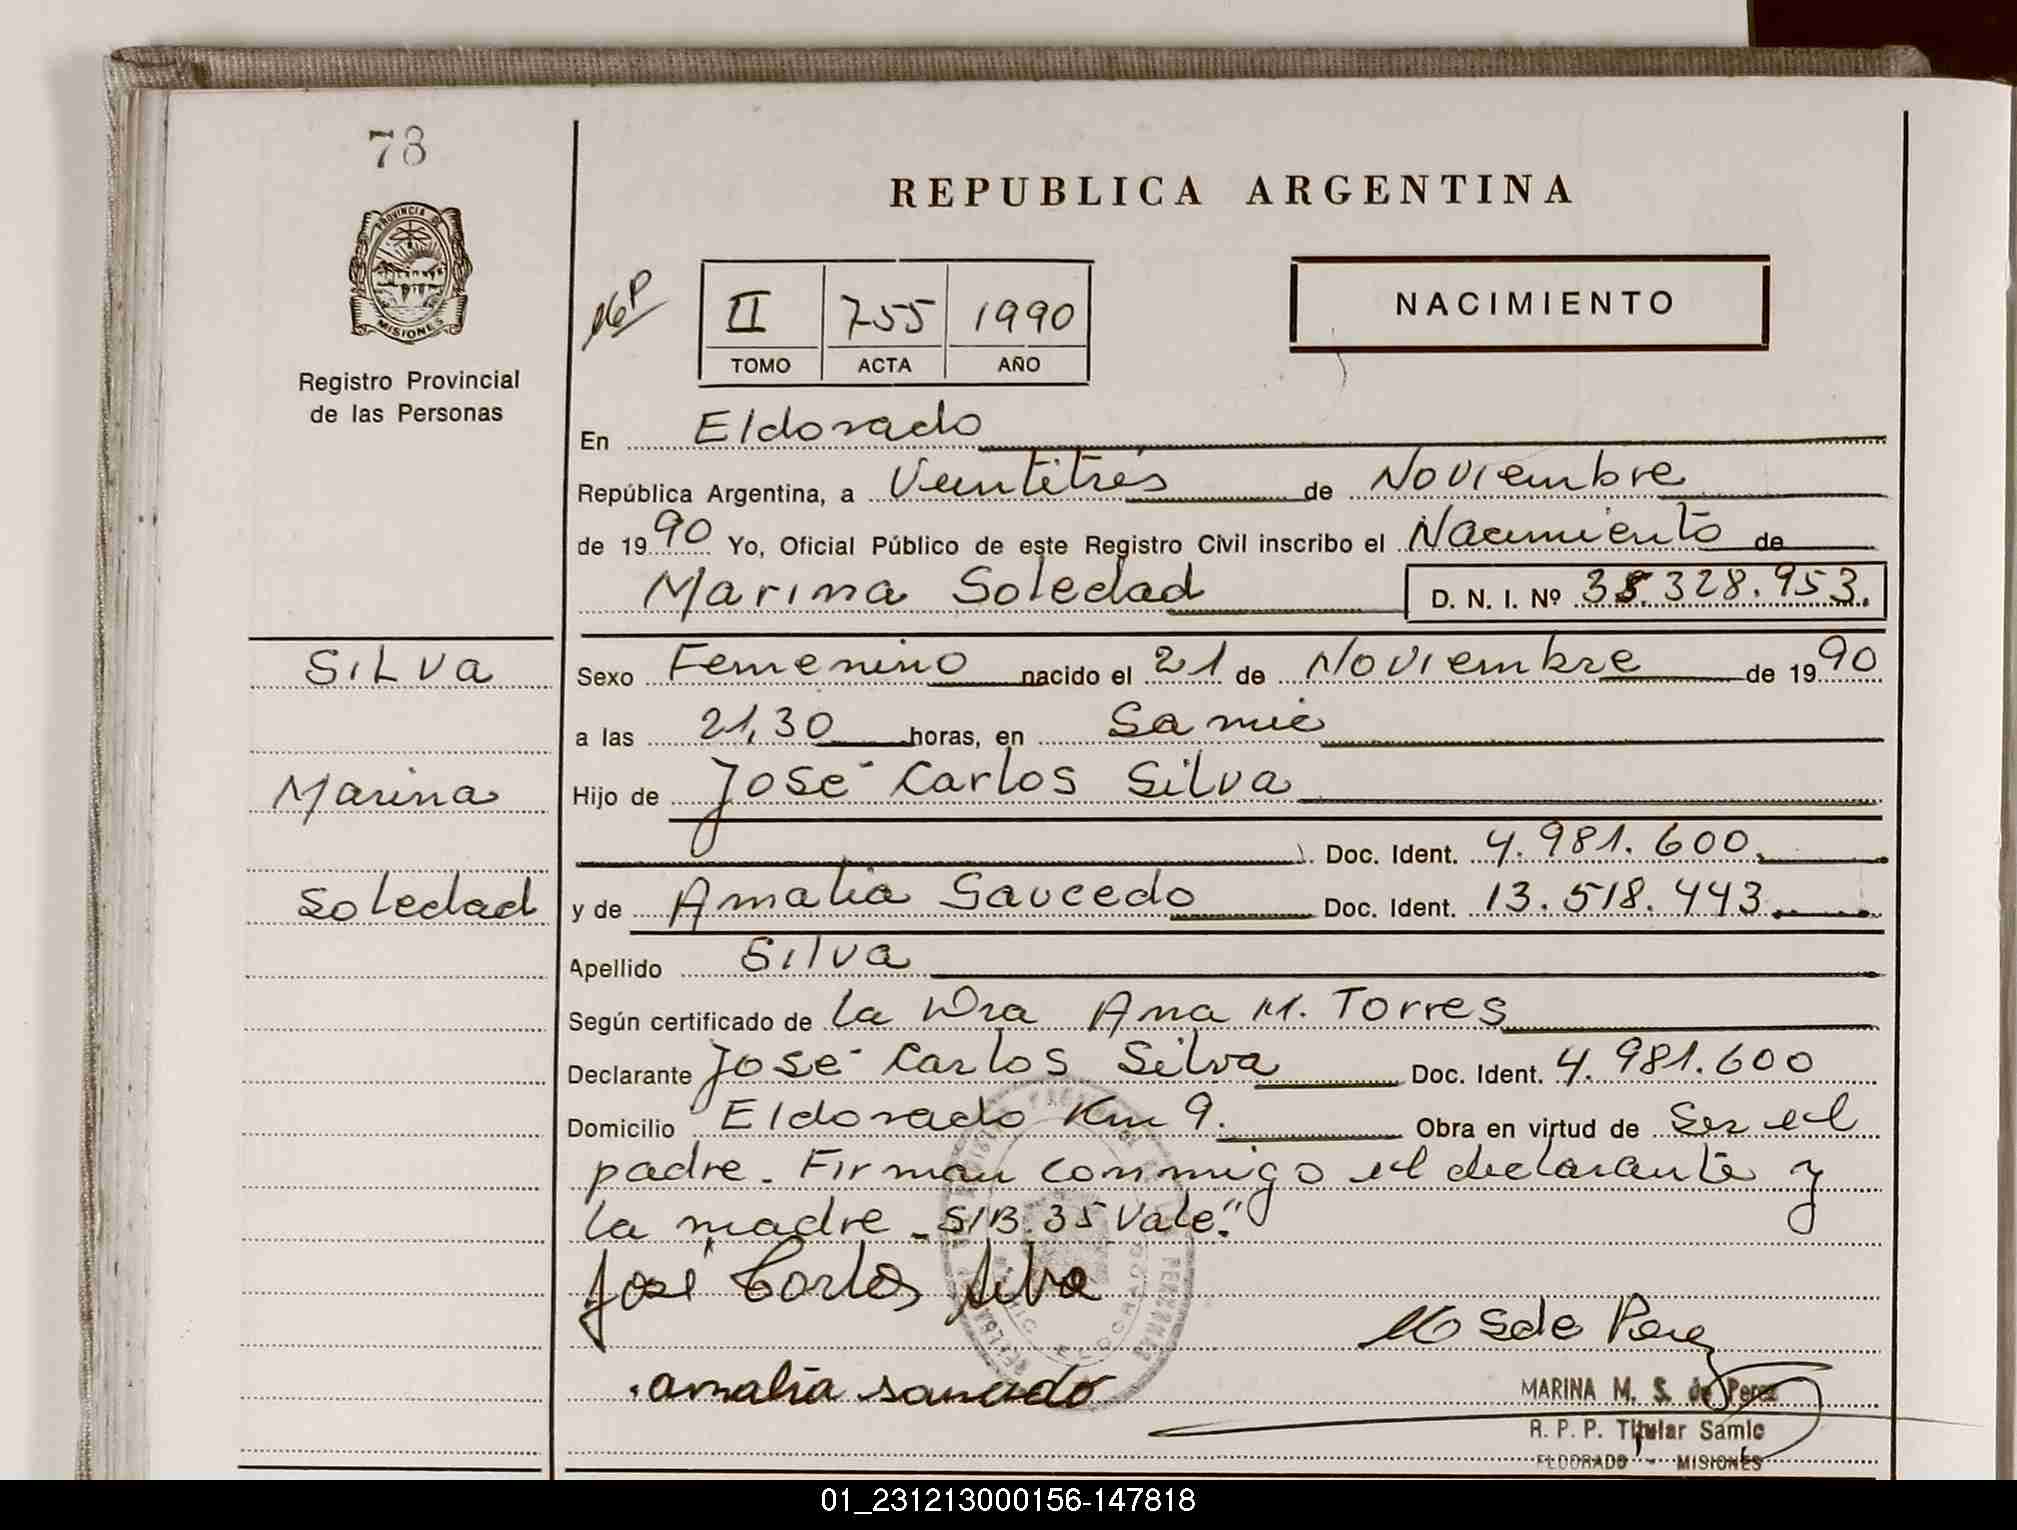 78
PROVINCIA DE
MISIONES
Registro Provincial
de las Personas
REPUBLICA ARGENTINA
II 755 1990
TOMO ACTA AÑO
NACIMIENTO
En Eldorado
República Argentina, a Veintitrés de Noviembre
de 1990 Yo, Oficial Público de este Registro Civil inscribo el Nacimiento de
Marina Soledad D. N. I. Nº 35.328.953.
SILVA
Sexo Femenino nacido el 21 de Noviembre de 1990
a las 21,30 horas, en Samic
Marina
Hijo de José Carlos Silva
Doc. Ident. 4.981.600
Soledad
y de Amalia Saucedo Doc. Ident. 13.518.443
Apellido Silva
Según certificado de la Dra Ana M. Torres
Declarante José Carlos Silva Doc. Ident. 4.981.600
Domicilio Eldorado Km 9. Obra en virtud de Ser el
padre. Firman conmigo el declarante y
la madre. S/B. 35 Vale."
José Carlos Silva
M S de Perez
amalia saucedo
MARINA M. S. de Perez
R. P. P. Titular Samic
ELDORADO - MISIONES
01_231213000156-147818